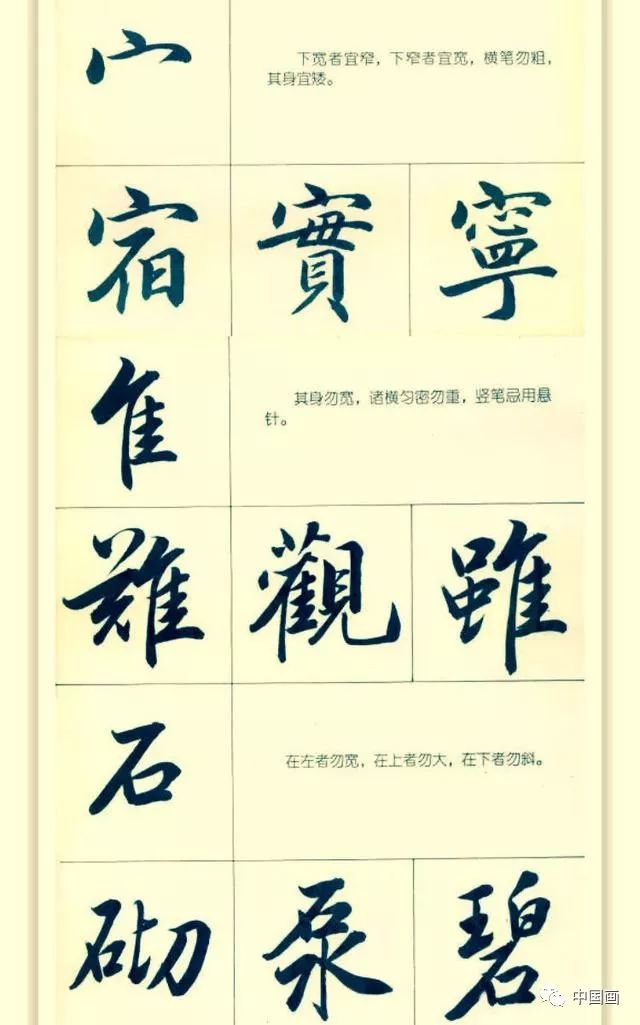 宀
下宽者宜窄，下窄者宜宽，横笔勿粗，
其身宜矮。
宿 實 寧
隹
其身勿宽，诸横匀密勿重，竖笔忌用悬
针。
難 觀 雖
石
在左者勿宽，在上者勿大，在下者勿斜。
砌 泵 碧
中国画